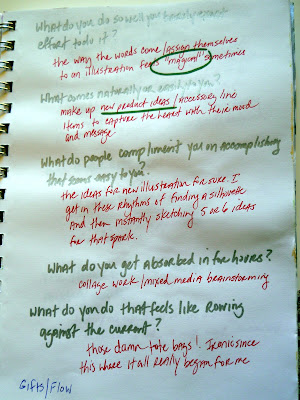 What do you do so well you barely exert
effort to do it?
the way the words come/assign themselves
to an illustration feels "magical" sometimes
What comes naturally or easily to you?
make up new product ideas/accessory line
items to capture the heart with their mood
and message
What do people compliment you on accomplishing
that seems easy to you?
the ideas for new illustration for sure. I
get in these rhythms of finding a silhouette
And then instantly sketching 5 or 6 ideas
for that spark.
What do you get absorbed in for hours?
collage work/mixed media brainstorming
What do you do that feels like Rowing
against the current?
those damn tote bags! Ironic since
this where it all really began for me
Gifts/Flow